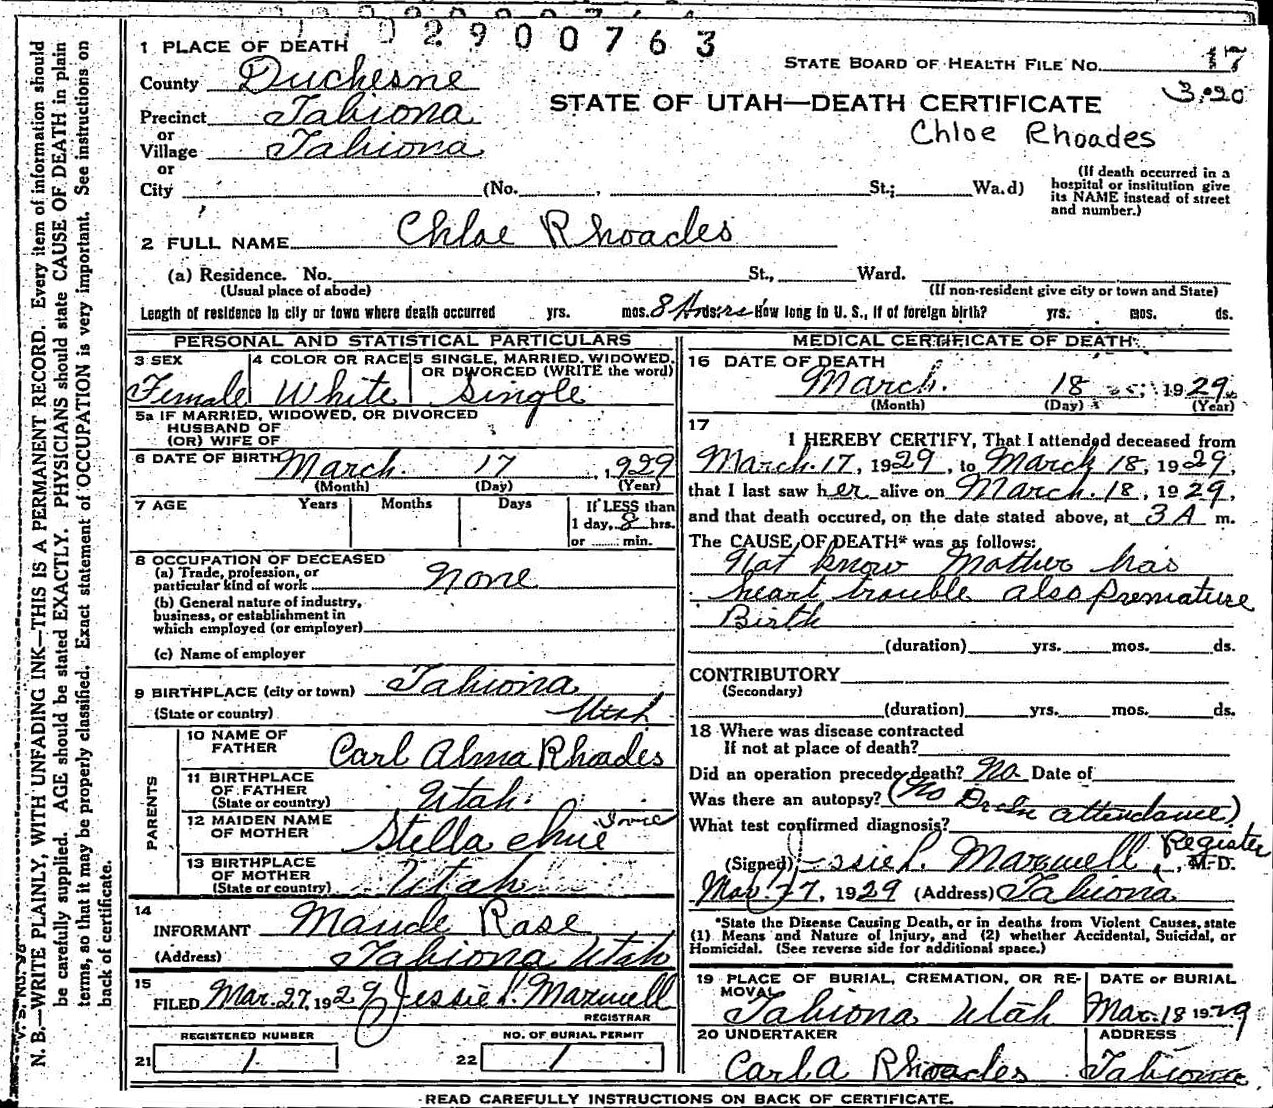 2900763
1 PLACE OF DEATH
STATE BOARD OF HEALTH FILE NO. 17
County Duchesne
3.20
STATE OF UTAH—DEATH CERTIFICATE
Precinct Tabiona
Chloe Rhoades
or
Village Tabiona
or
City (No. , St.; Wa.d)
(If death occurred in a
hospital or institution give
its NAME instead of street
and number.)
2 FULL NAME Chloe Rhoades
(a) Residence. No. St., Ward.
(Usual place of abode) (If non-resident give city or town and State)
Length of residence in city or town where death occurred yrs. mos. 8 Hours How long in U. S., if of foreign birth? yrs. mos. ds.
PERSONAL AND STATISTICAL PARTICULARS
3 SEX 4 COLOR OR RACE 5 SINGLE, MARRIED, WIDOWED,
OR DIVORCED (WRITE the word)
Female White Single
5a IF MARRIED, WIDOWED, OR DIVORCED
HUSBAND OF
(OR) WIFE OF
6 DATE OF BIRTH March 17, 1929
(Month) (Day) (Year)
7 AGE Years Months Days If LESS than
1 day, 8 hrs.
or ...... min.
8 OCCUPATION OF DECEASED
(a) Trade, profession, or
particular kind of work None
(b) General nature of industry,
business, or establishment in
which employed (or employer)
(c) Name of employer
9 BIRTHPLACE (city or town) Tabiona
(State or country) Utah
PARENTS
10 NAME OF
FATHER Carl Alma Rhoades
11 BIRTHPLACE
OF FATHER
(State or country) Utah
12 MAIDEN NAME
OF MOTHER Stella
13 BIRTHPLACE
OF MOTHER
(State or country) Utah
14
INFORMANT Maude Rase
(Address) Tabiona Utah
15
FILED Mar. 27, 1929 Jessie L. Maxwell
REGISTRAR
REGISTERED NUMBER NO. OF BURIAL PERMIT
21 1 22 1
MEDICAL CERTIFICATE OF DEATH
16 DATE OF DEATH
March 18 1929
(Month) (Day) (Year)
17
I HEREBY CERTIFY, That I attended deceased from
March 17, 1929, to March 18, 1929,
that I last saw her alive on March 18, 1929,
and that death occured, on the date stated above, at 3 A m.
The CAUSE OF DEATH* was as follows:
Not know Mother has
heart trouble also premature
Birth
(duration) yrs. mos. ds.
CONTRIBUTORY
(Secondary)
(duration) yrs. mos. ds.
18 Where was disease contracted
If not at place of death?
Did an operation precede death? No Date of
Was there an autopsy? (No Dr in attendance)
What test confirmed diagnosis?
(Signed) Jessie L. Maxwell Register, M. D.
Mar. 27, 1929 (Address) Tabiona
*State the Disease Causing Death, or in deaths from Violent Causes, state
(1) Means and Nature of Injury, and (2) whether Accidental, Suicidal, or
Homicidal. (See reverse side for additional space.)
19 PLACE OF BURIAL, CREMATION, OR RE-
MOVAL DATE OF BURIAL
Tabiona Utah Mar. 18 1929
20 UNDERTAKER ADDRESS
Carl A Rhoades Tabiona
READ CAREFULLY INSTRUCTIONS ON BACK OF CERTIFICATE.
N. B.—WRITE PLAINLY, WITH UNFADING INK—THIS IS A PERMANENT RECORD. Every item of information should
be carefully supplied. AGE should be stated EXACTLY. PHYSICIANS should state CAUSE OF DEATH in plain
terms, so that it may be properly classified. Exact statement of OCCUPATION is very important. See instructions on
back of certificate.